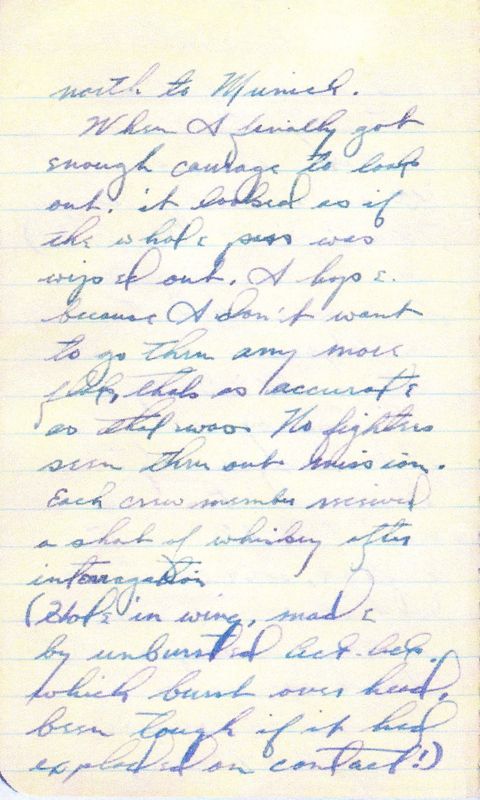 north to Munich.
When I finally got
enough courage to look
out, it looked as if
the whole pass was
wiped out. I hope.
because I don't want
to go thru any more
flak, thats as accurate
as that was. No fighters
seen thru out mission.
Each crew member received
a shot of whiskey after
interragation
(Hole in wing, made
by unbursted ack-ack.
which burst over head,
been tough if it had
exploded on contact!)